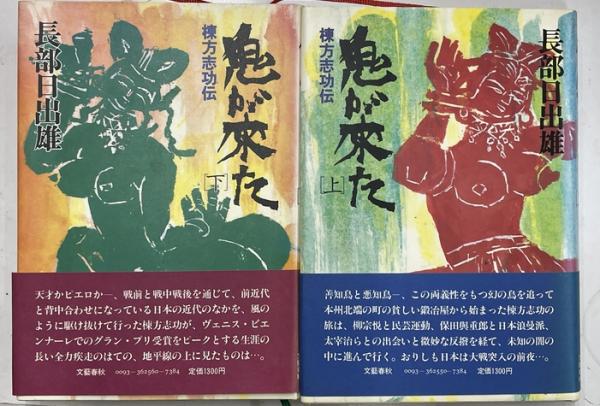 長部日出雄
鬼が来た
棟方志功伝
[下]
天才かピエロか―、戦前と戦中戦後を通じて、前近代
と背中合わせになっている日本の近代のなかを、風の
ように駆け抜けて行った棟方志功が、ヴェニス・ビエ
ンナーレでのグラン・プリ受賞をピークとする生涯の
長い全力疾走のはての、地平線の上に見たものは…。
文藝春秋 0093-362560-7384 定価1300円
長部日出雄
鬼が来た
棟方志功伝
[上]
善知鳥と悪知鳥―、この両義性をもつ幻の鳥を追って
本州北端の町の貧しい鍛冶屋から始まった棟方志功の
旅は、柳宗悦と民芸運動、保田與重郎と日本浪曼派、
太宰治らとの出会いと微妙な反撥を経て、未知の闇の
中に進んで行く。おりしも日本は大戦突入の前夜…。
文藝春秋 0093-362550-7384 定価1300円